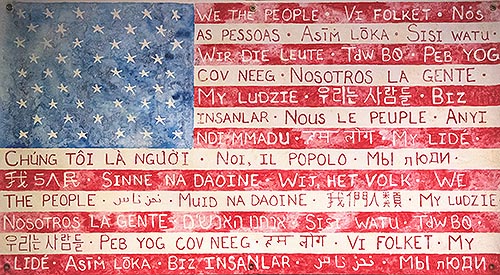 WE THE PEOPLE · VI FOLKET · NÓS
AS PESSOAS · ASĪM LŌKA · SISI WATU ·
WIR DIE LEUTE · TdW BQ · PEB YOG
COV NEEG · NOSOTROS LA GENTE ·
MY LUDZIE · 우리는 사람들 · BIZ
INSANLAR · NOUS LE PEUPLE · ANYI
NDI MMADU · हम लोग · MY LIDÉ ·
CHÚNG TÔI LÀ NGƯỜI · NOI, IL POPOLO · МЫ ЛЮДИ ·
我ら人民 · SINNE NA DAOINE · WIJ, HET VOLK · WE
THE PEOPLE · نحن ناس · MUID NA DAOINE · 我們人類 · MY LUDZIE
NOSOTROS LA GENTE · אנחנו האנשים · SISI WATU · TdW BQ ·
우리는 사람들 · PEB YOG COV NEEG · हम लोग · VI FOLKET · MY
LIDÉ · ASĪM LŌKA · BIZ INSANLAR · نحن ناس · МЫ ЛЮДИ